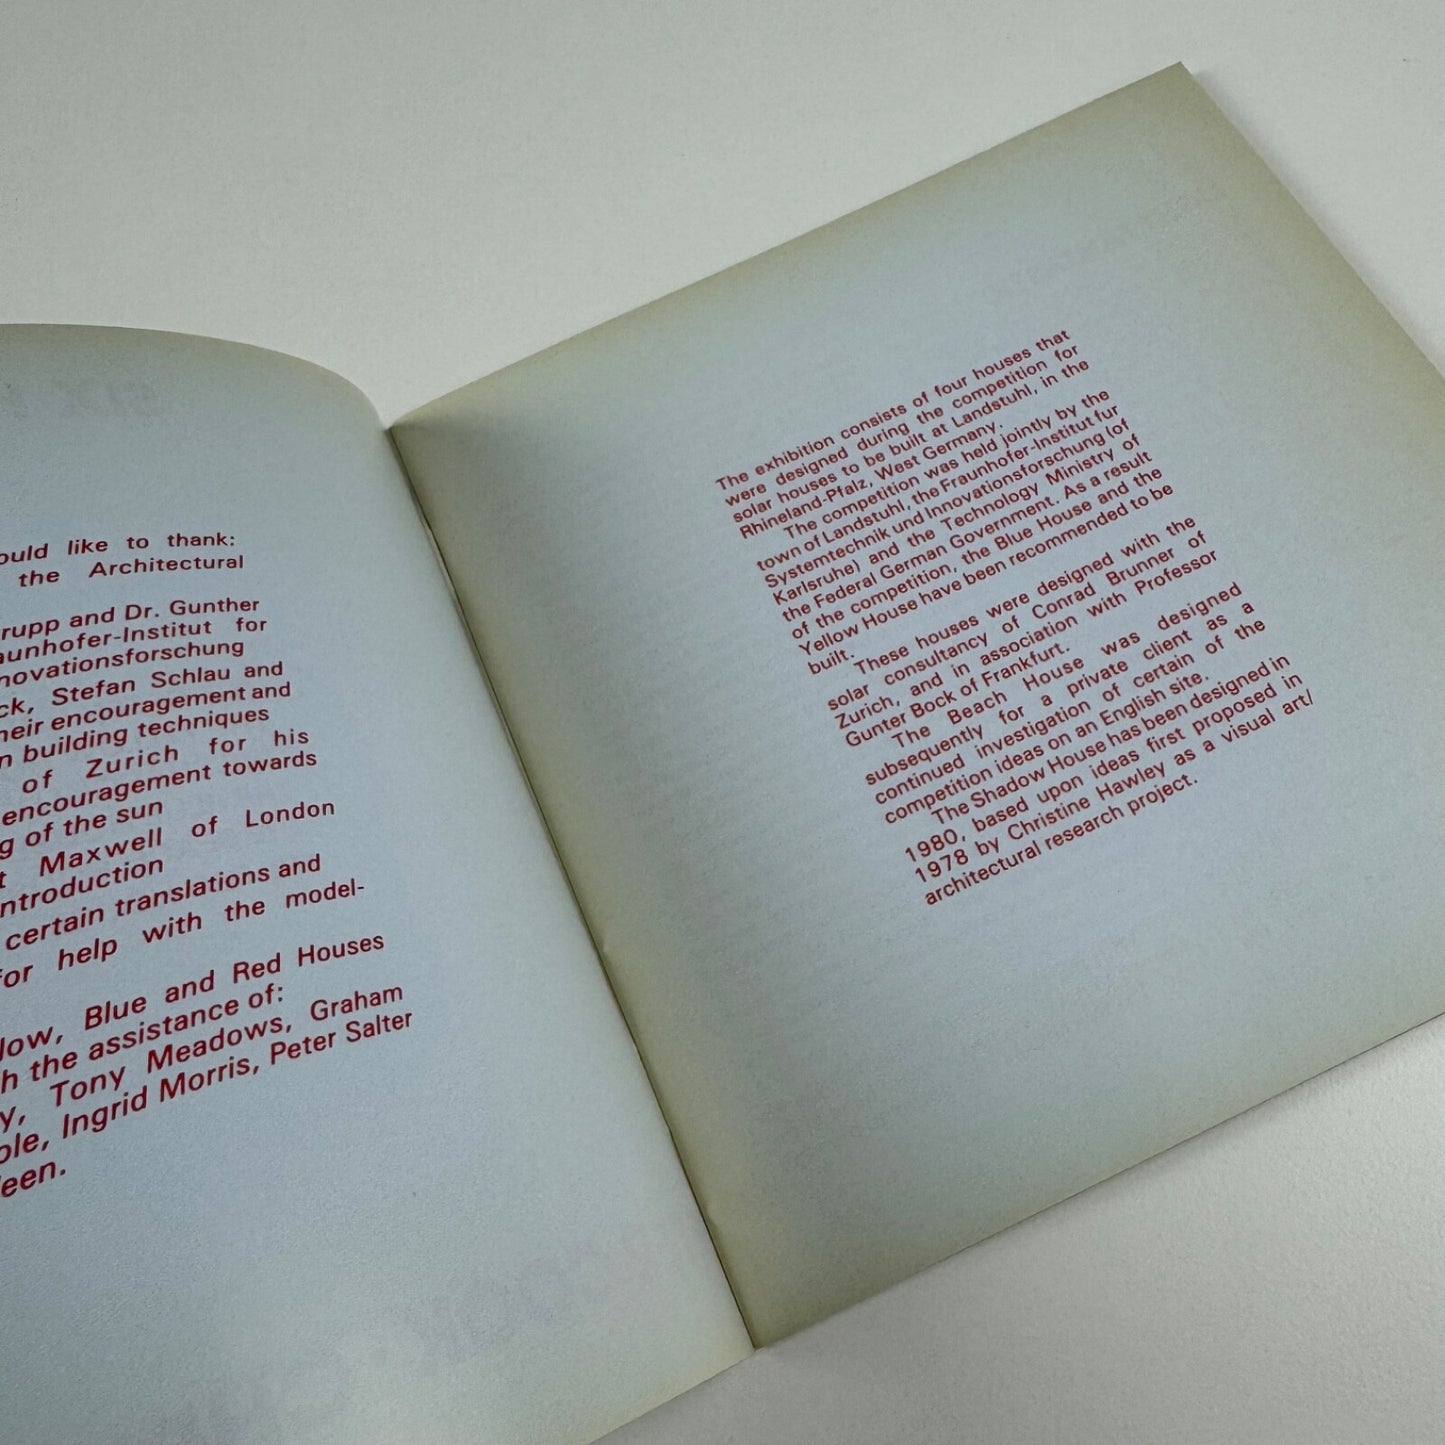 like to thank:
the Architectural
and Dr. Gunther
for
Schlau and
encouragement and
building techniques
of Zurich for his
encouragement towards
of the sun
Maxwell of London
certain translations and
help with the model-
Blue and Red Houses
the assistance of:
Tony Meadows, Graham
Ingrid Morris, Peter Salter
The exhibition consists of four houses that
were designed during the competition for
solar houses to be built at Landstuhl, in the
Rhineland-Pfalz, West Germany.
The competition was held jointly by the
town of Landstuhl, the Fraunhofer-Institut fur
Systemtechnik und Innovationsforschung (of
Karlsruhe) and the Technology Ministry of
the Federal German Government. As a result
of the competition, the Blue House and the
Yellow House have been recommended to be
built.
These houses were designed with the
solar consultancy of Conrad Brunner of
Zurich, and in association with Professor
Gunter Bock of Frankfurt.
The Beach House was designed
subsequently for a private client as a
continued investigation of certain of the
competition ideas on an English site.
The Shadow House has been designed in
1980, based upon ideas first proposed in
1978 by Christine Hawley as a visual art/
architectural research project.